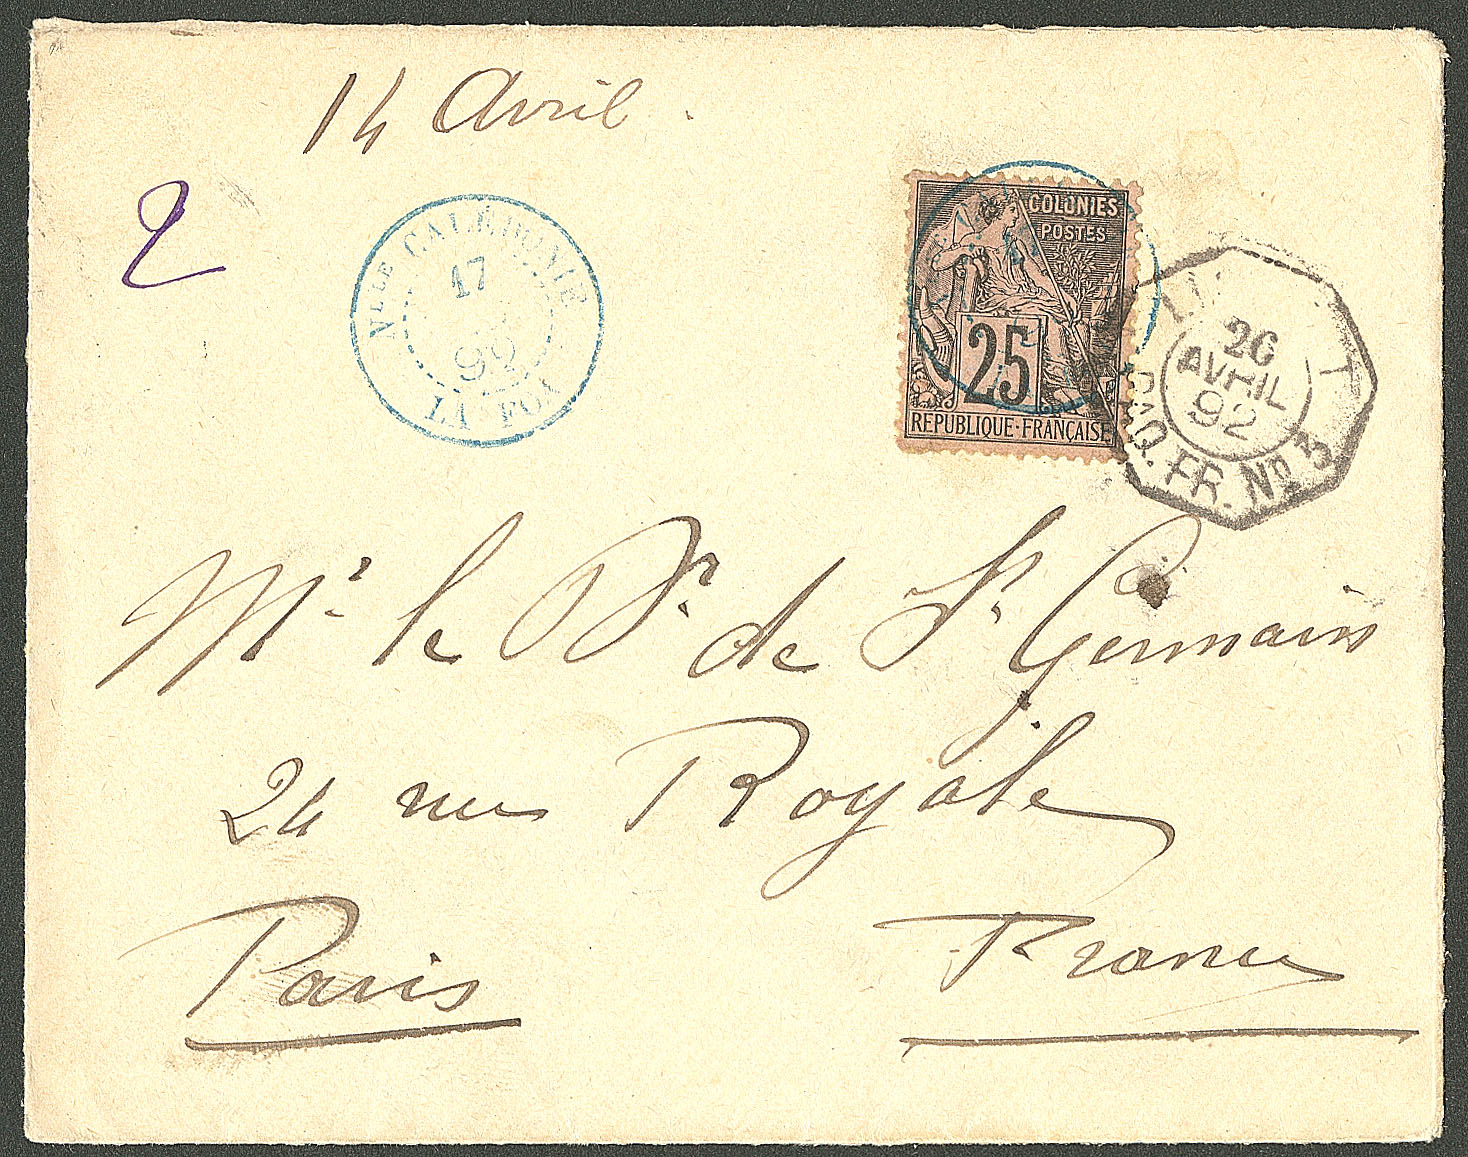 14 Avril.
2
Nlle CALÉDONIE
17
92
LA FOA
COLONIES
POSTES
25
REPUBLIQUE·FRANÇAISE
26
AVRIL
92
PAQ. FR. No 3
Mr. le Dr. de St. Germain
24 rue Royale
Paris
France